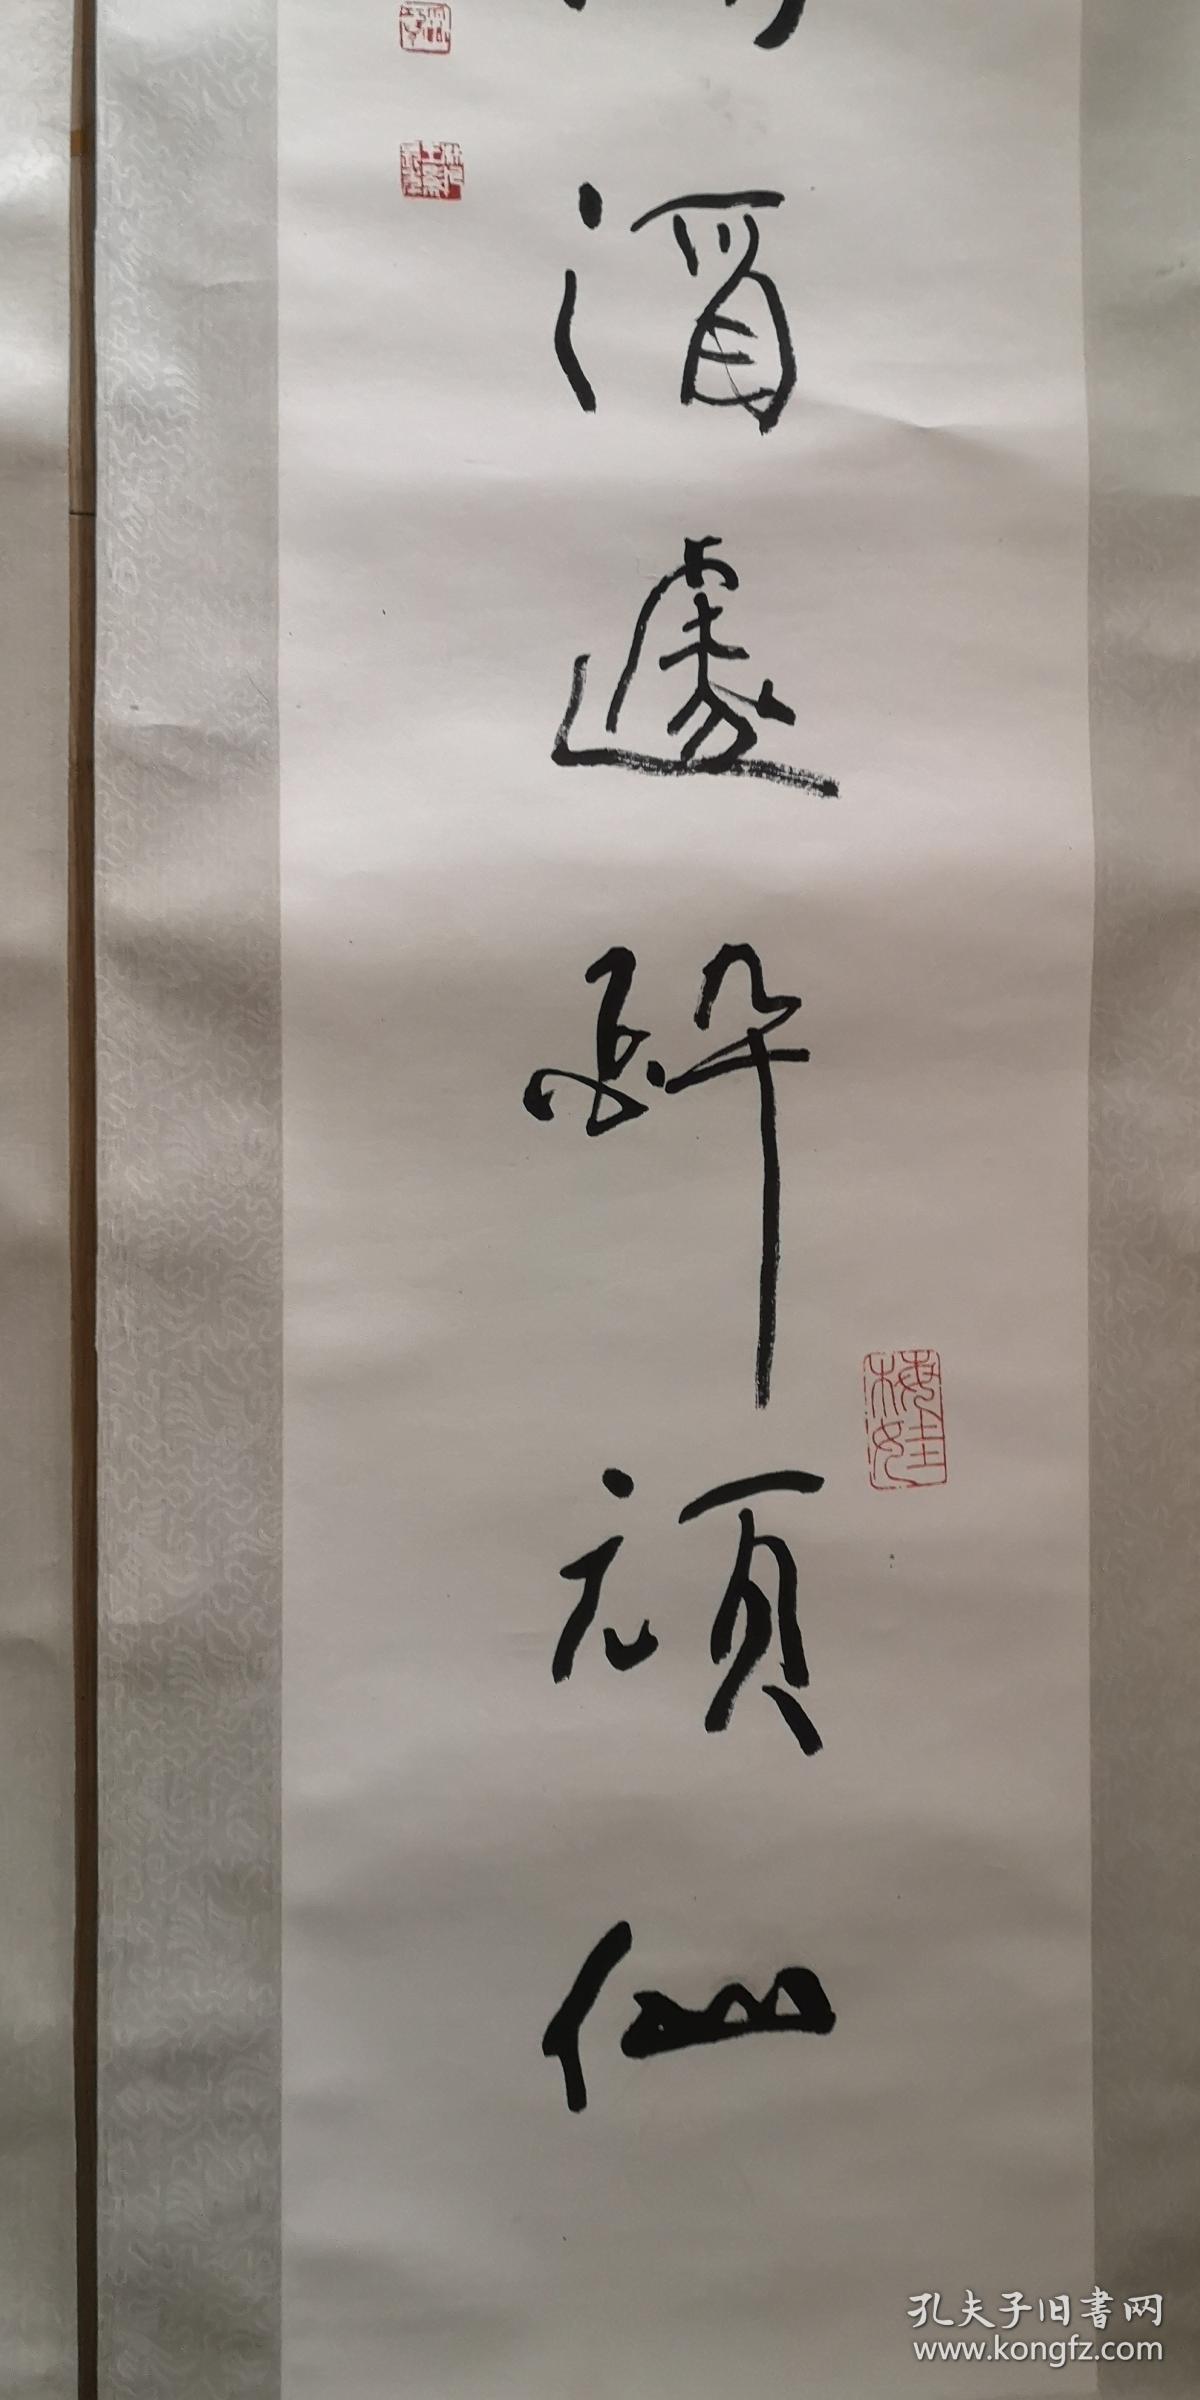 酒遽醉頑仙
梅娃
孔夫子旧書网
www.kongfz.com